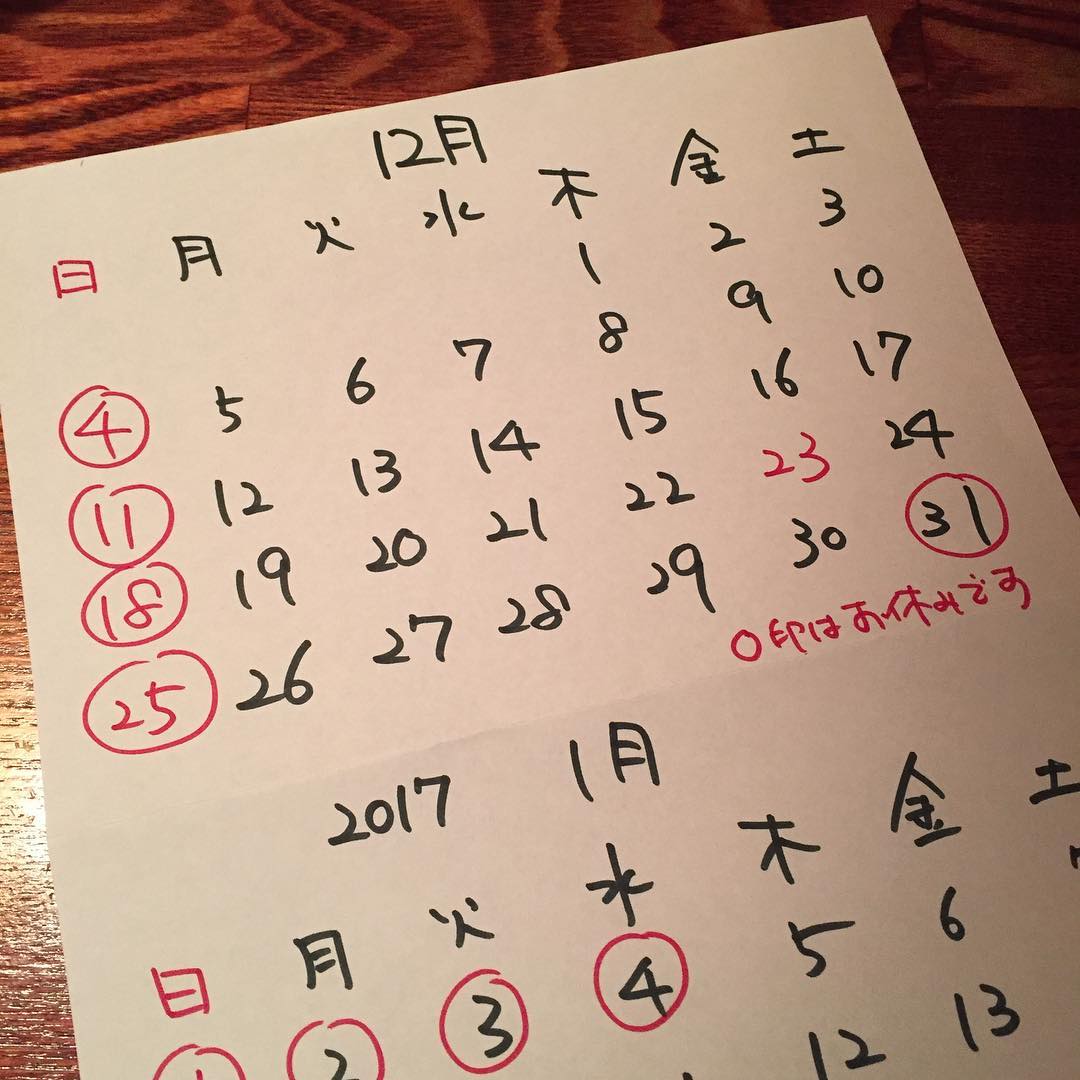 12月
日 月 火 水 木 金 土
1 2 3
4 5 6 7 8 9 10
11 12 13 14 15 16 17
18 19 20 21 22 23 24
25 26 27 28 29 30 31
○印はお休みです
2017 1月
日 月 火 水 木 金 土
1 2 3 4 5 6
12 13